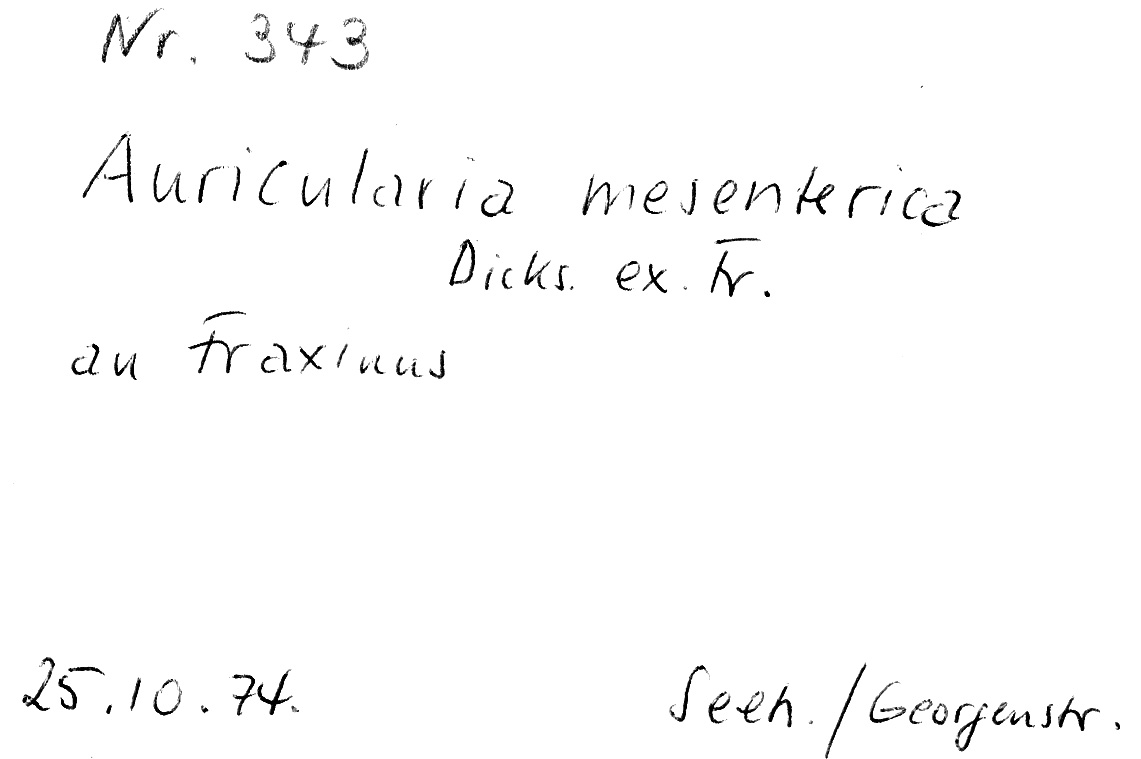 Nr. 343
Auricularia mesenterica
Dicks. ex. Fr.
an Fraxinus
25.10.74. Seeh./Georgenstr.